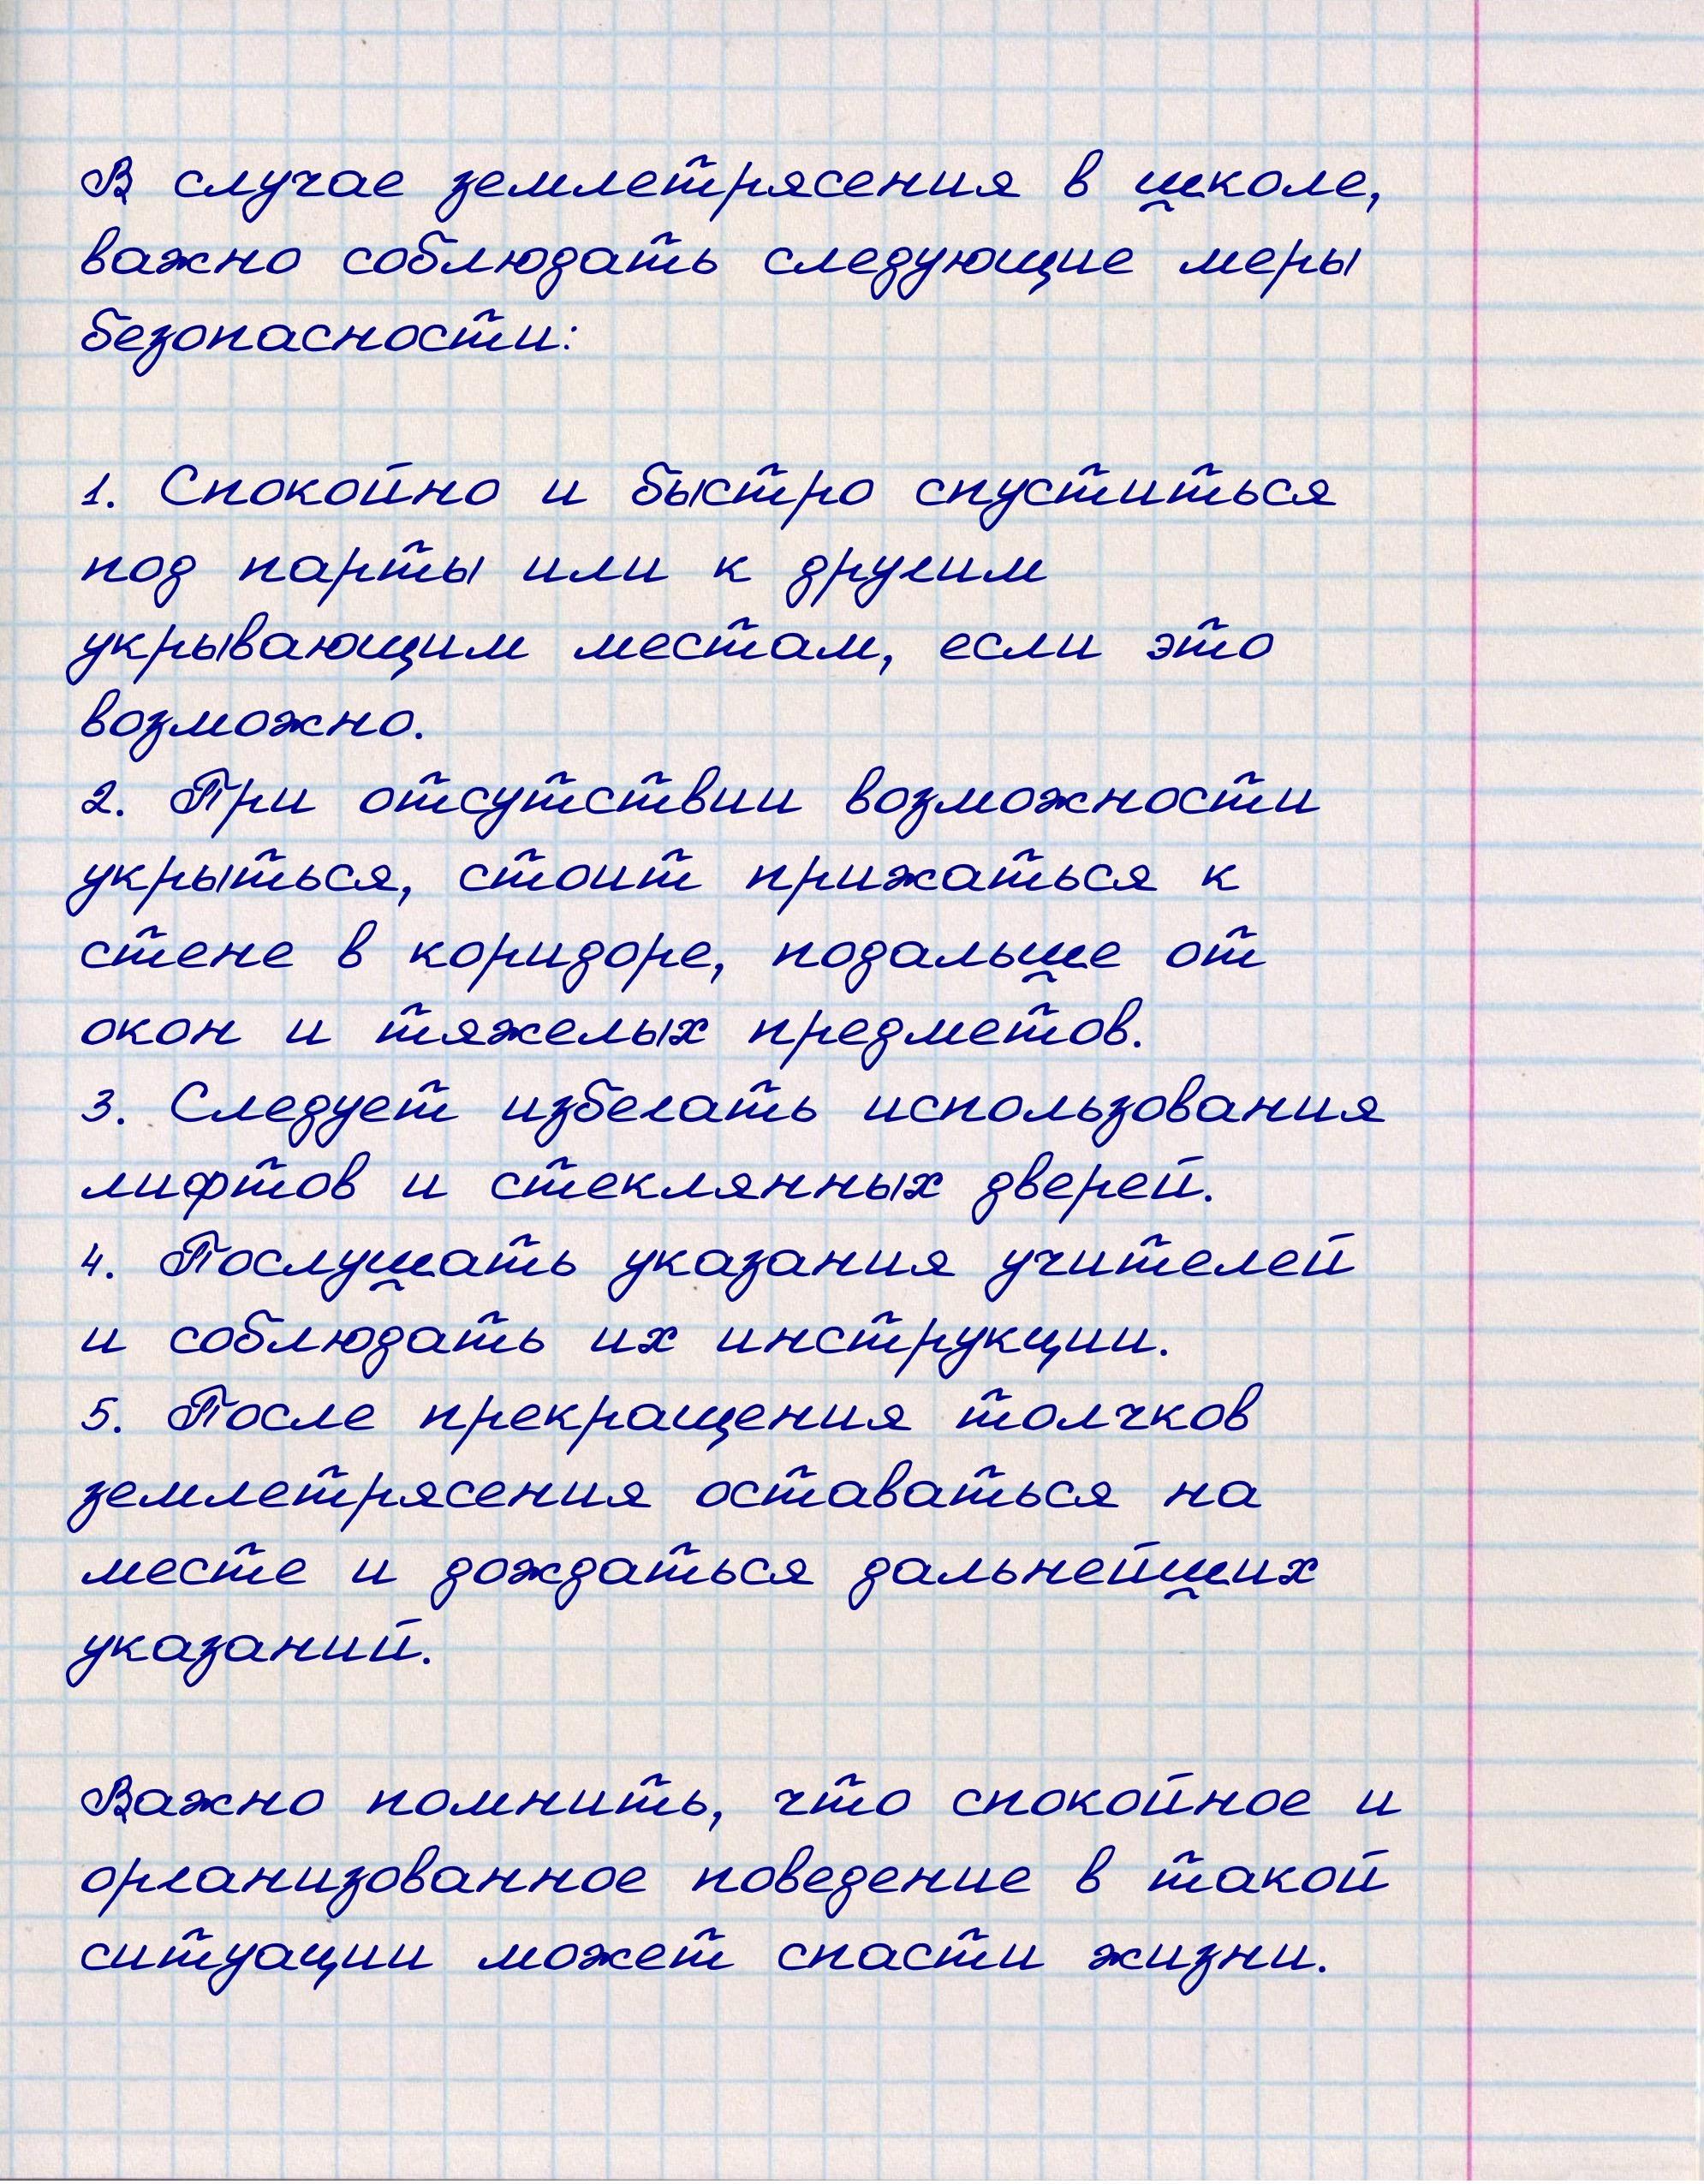 В случае землетрясения в школе,
важно соблюдать следующие меры
безопасности:
1. Спокойно и быстро спуститься
под парты или к другим
укрывающим местам, если это
возможно.
2. При отсутствии возможности
укрыться, стоит прижаться к
стене в коридоре, подальше от
окон и тяжелых предметов.
3. Следует избегать использования
лифтов и стеклянных дверей.
4. Послушать указания учителей
и соблюдать их инструкции.
5. После прекращения толчков
землетрясения оставаться на
месте и дождаться дальнейших
указаний.
Важно помнить, что спокойное и
организованное поведение в такой
ситуации может спасти жизни.